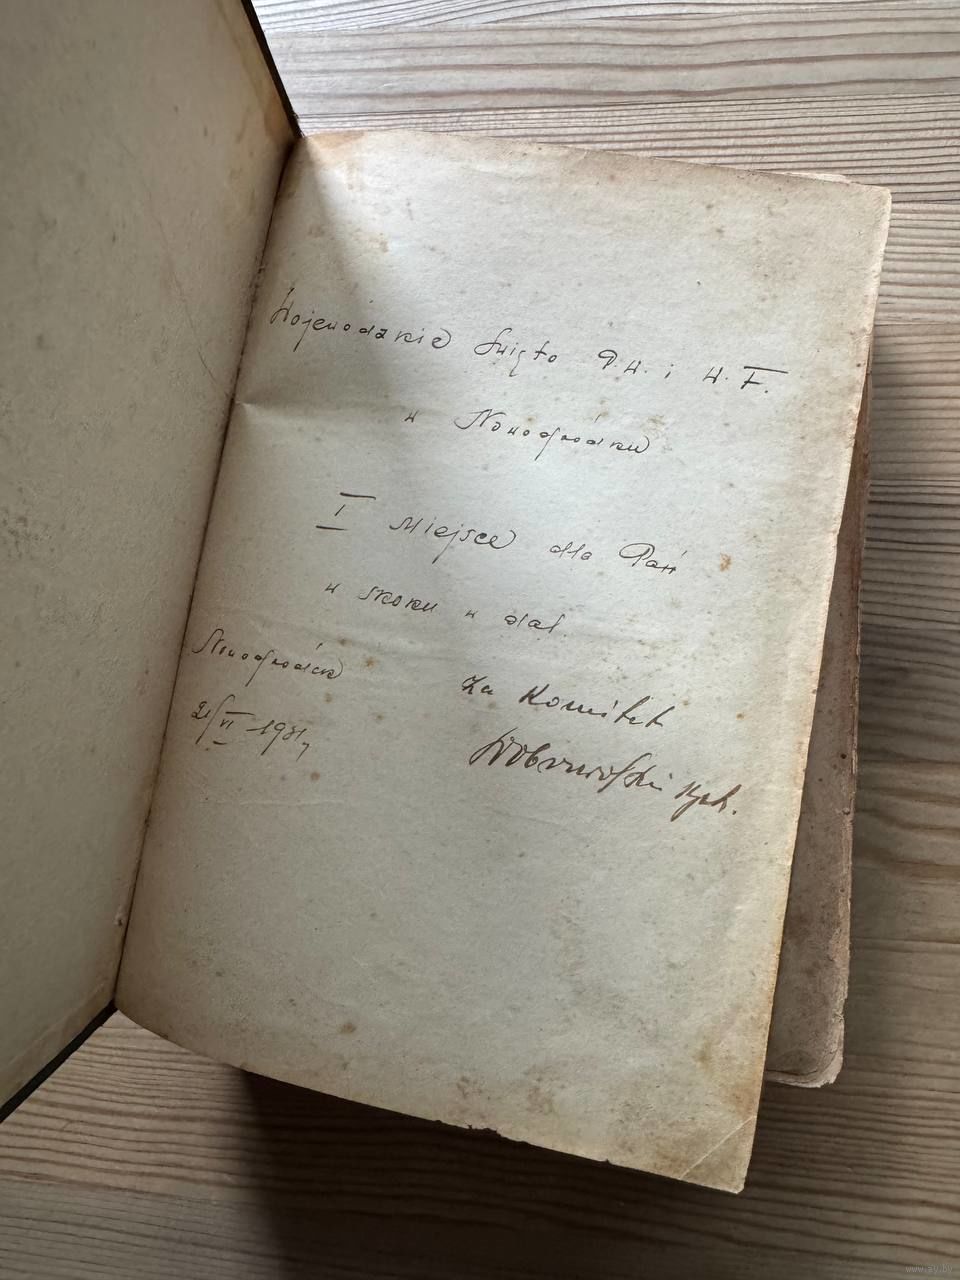 Wojewódzkie Święto P.W. i W.F.
w Nowogródku
I Miejsce dla Pań
w skoku w dal.
Nowogródek
21/VI 1931,
Za Komitet
Dobrowolski kpt.
www.ay.by